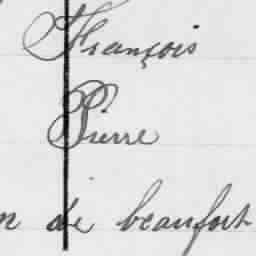 François
Pierre
n de beaufort